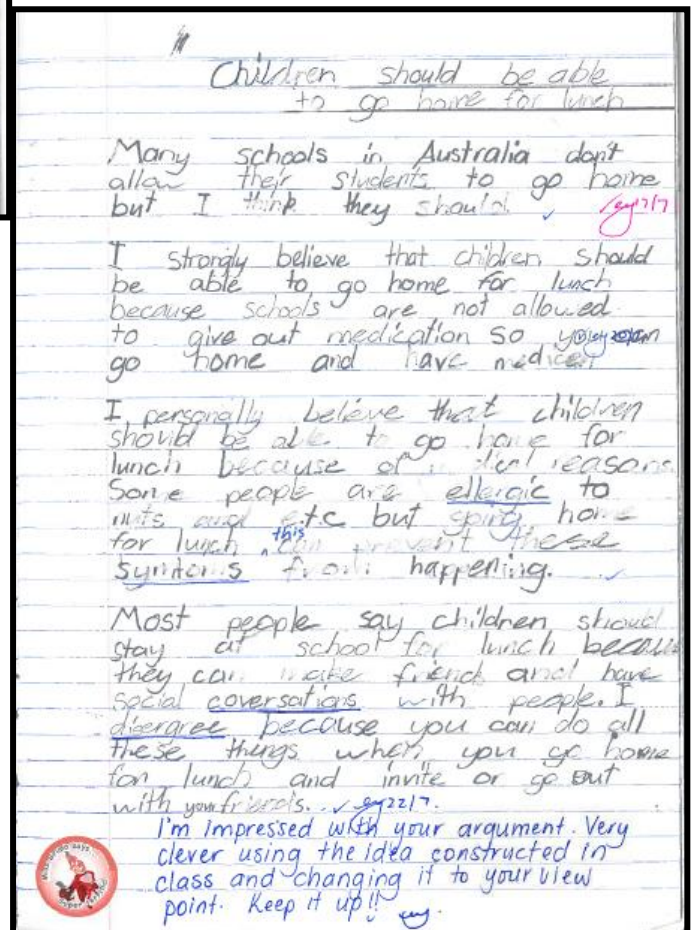 Children should be able
to go home for lunch
Many schools in Australia don't
allow their students to go home
but I think they should.
17/7
I strongly believe that children should
be able to go home for lunch
because schools are not allowed
to give out medication so you can
go home and have
I personally believe that children
should be able to go home for
lunch because of reasons
Some people are ellergic to
nuts and e.t.c but going home
for lunch this can prevent these
symtoms from happening.
Most people say children should
stay at school for lunch because
they can make friends and have
social coversations with people. I
disergree because you can do all
these things when you go home
for lunch and invite or go out
with your friends. 22/7.
I'm impressed with your argument. Very
clever using the idea constructed in
class and changing it to your view
point. Keep it up!!